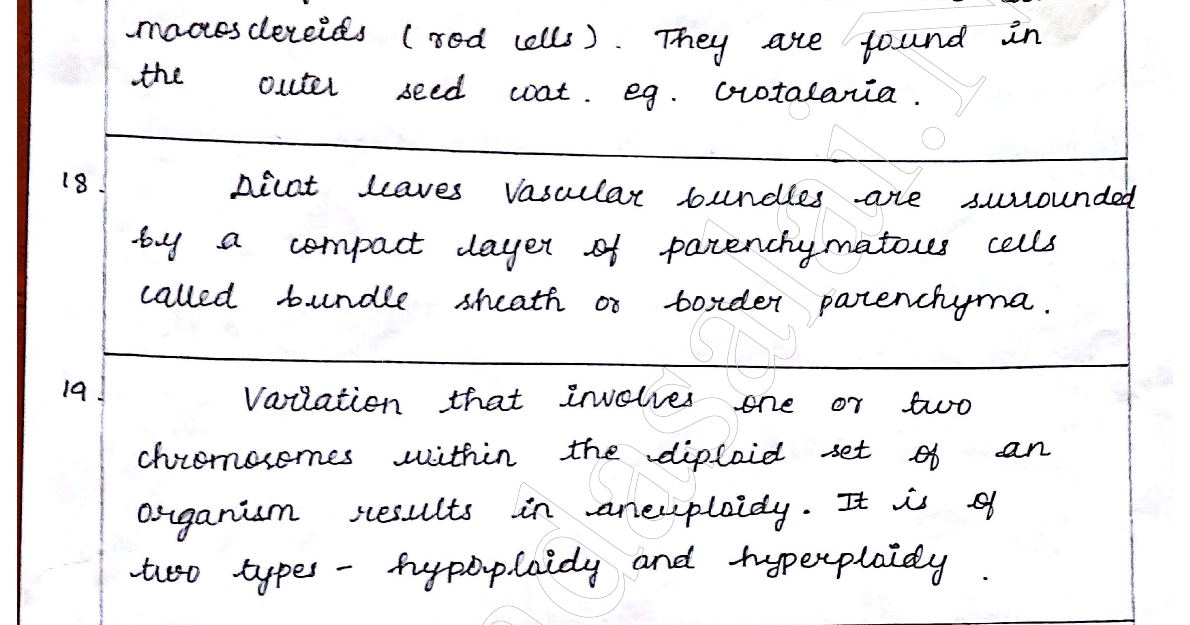 macrosclereids (rod cells). They are found in
the outer seed coat. eg. crotalaria.
18. Dicot leaves Vascular bundles are surrounded
by a compact layer of parenchymatous cells
called bundle sheath or border parenchyma.
19. Variation that involves one or two
chromosomes within the diploid set of an
organism results in aneuploidy. It is of
two types - hypoploidy and hyperploidy.